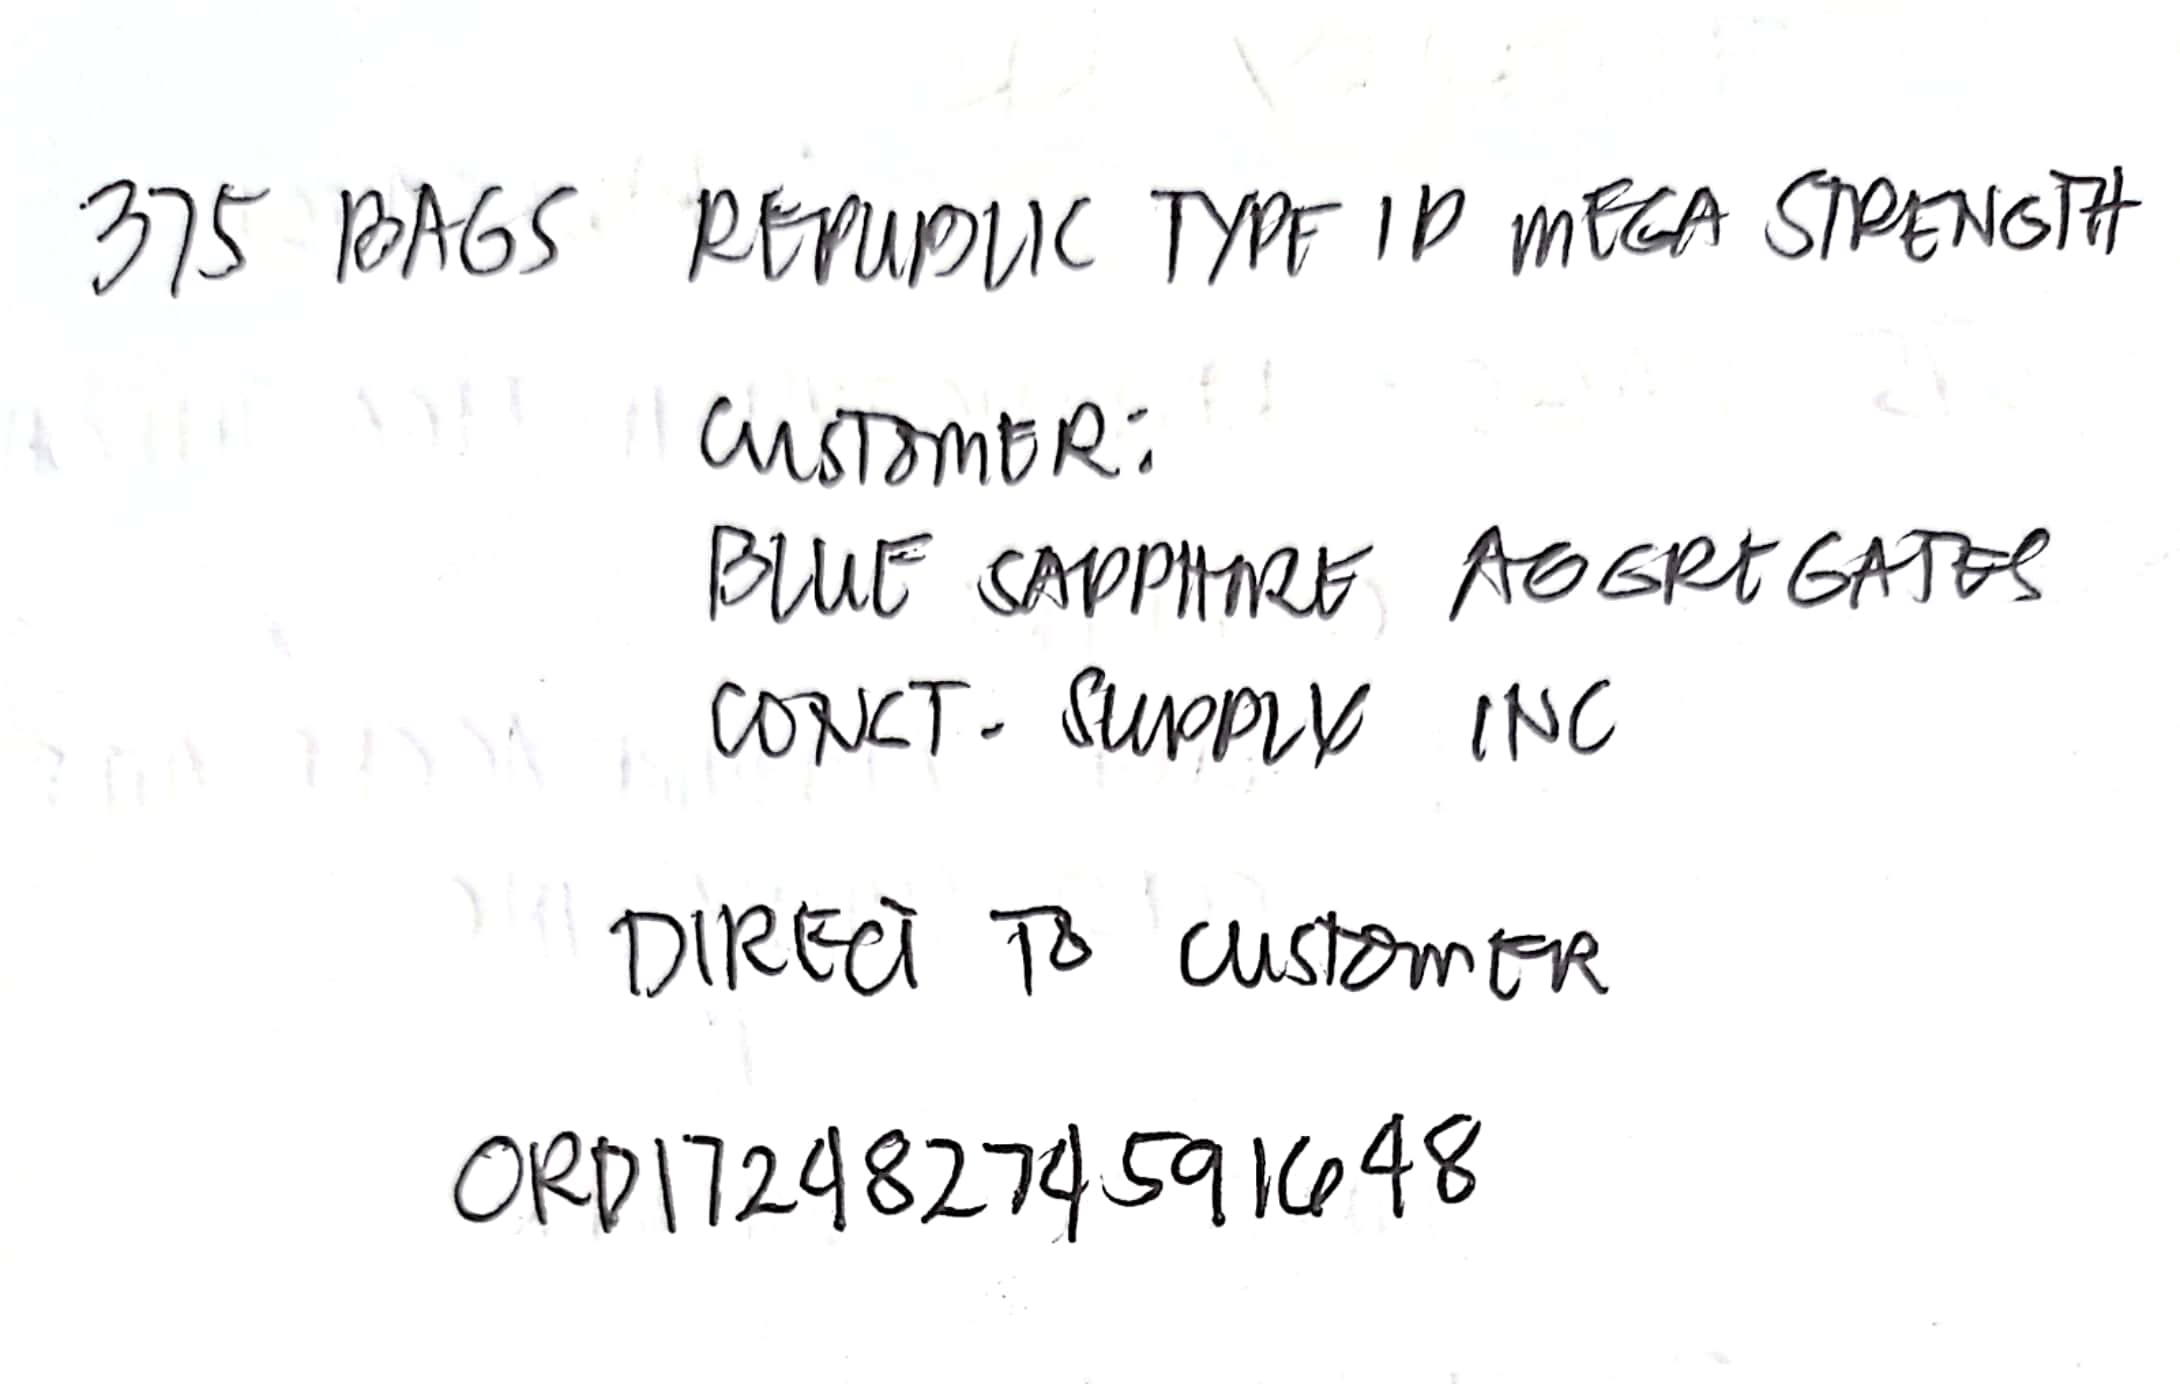 375 BAGS REPUBLIC TYPE 1P MEGA STRENGTH
CUSTOMER:
BLUE SAPPHIRE AGGREGATES
CONCT. SUPPLY INC
DIRECT TO CUSTOMER
ORD17248274591648